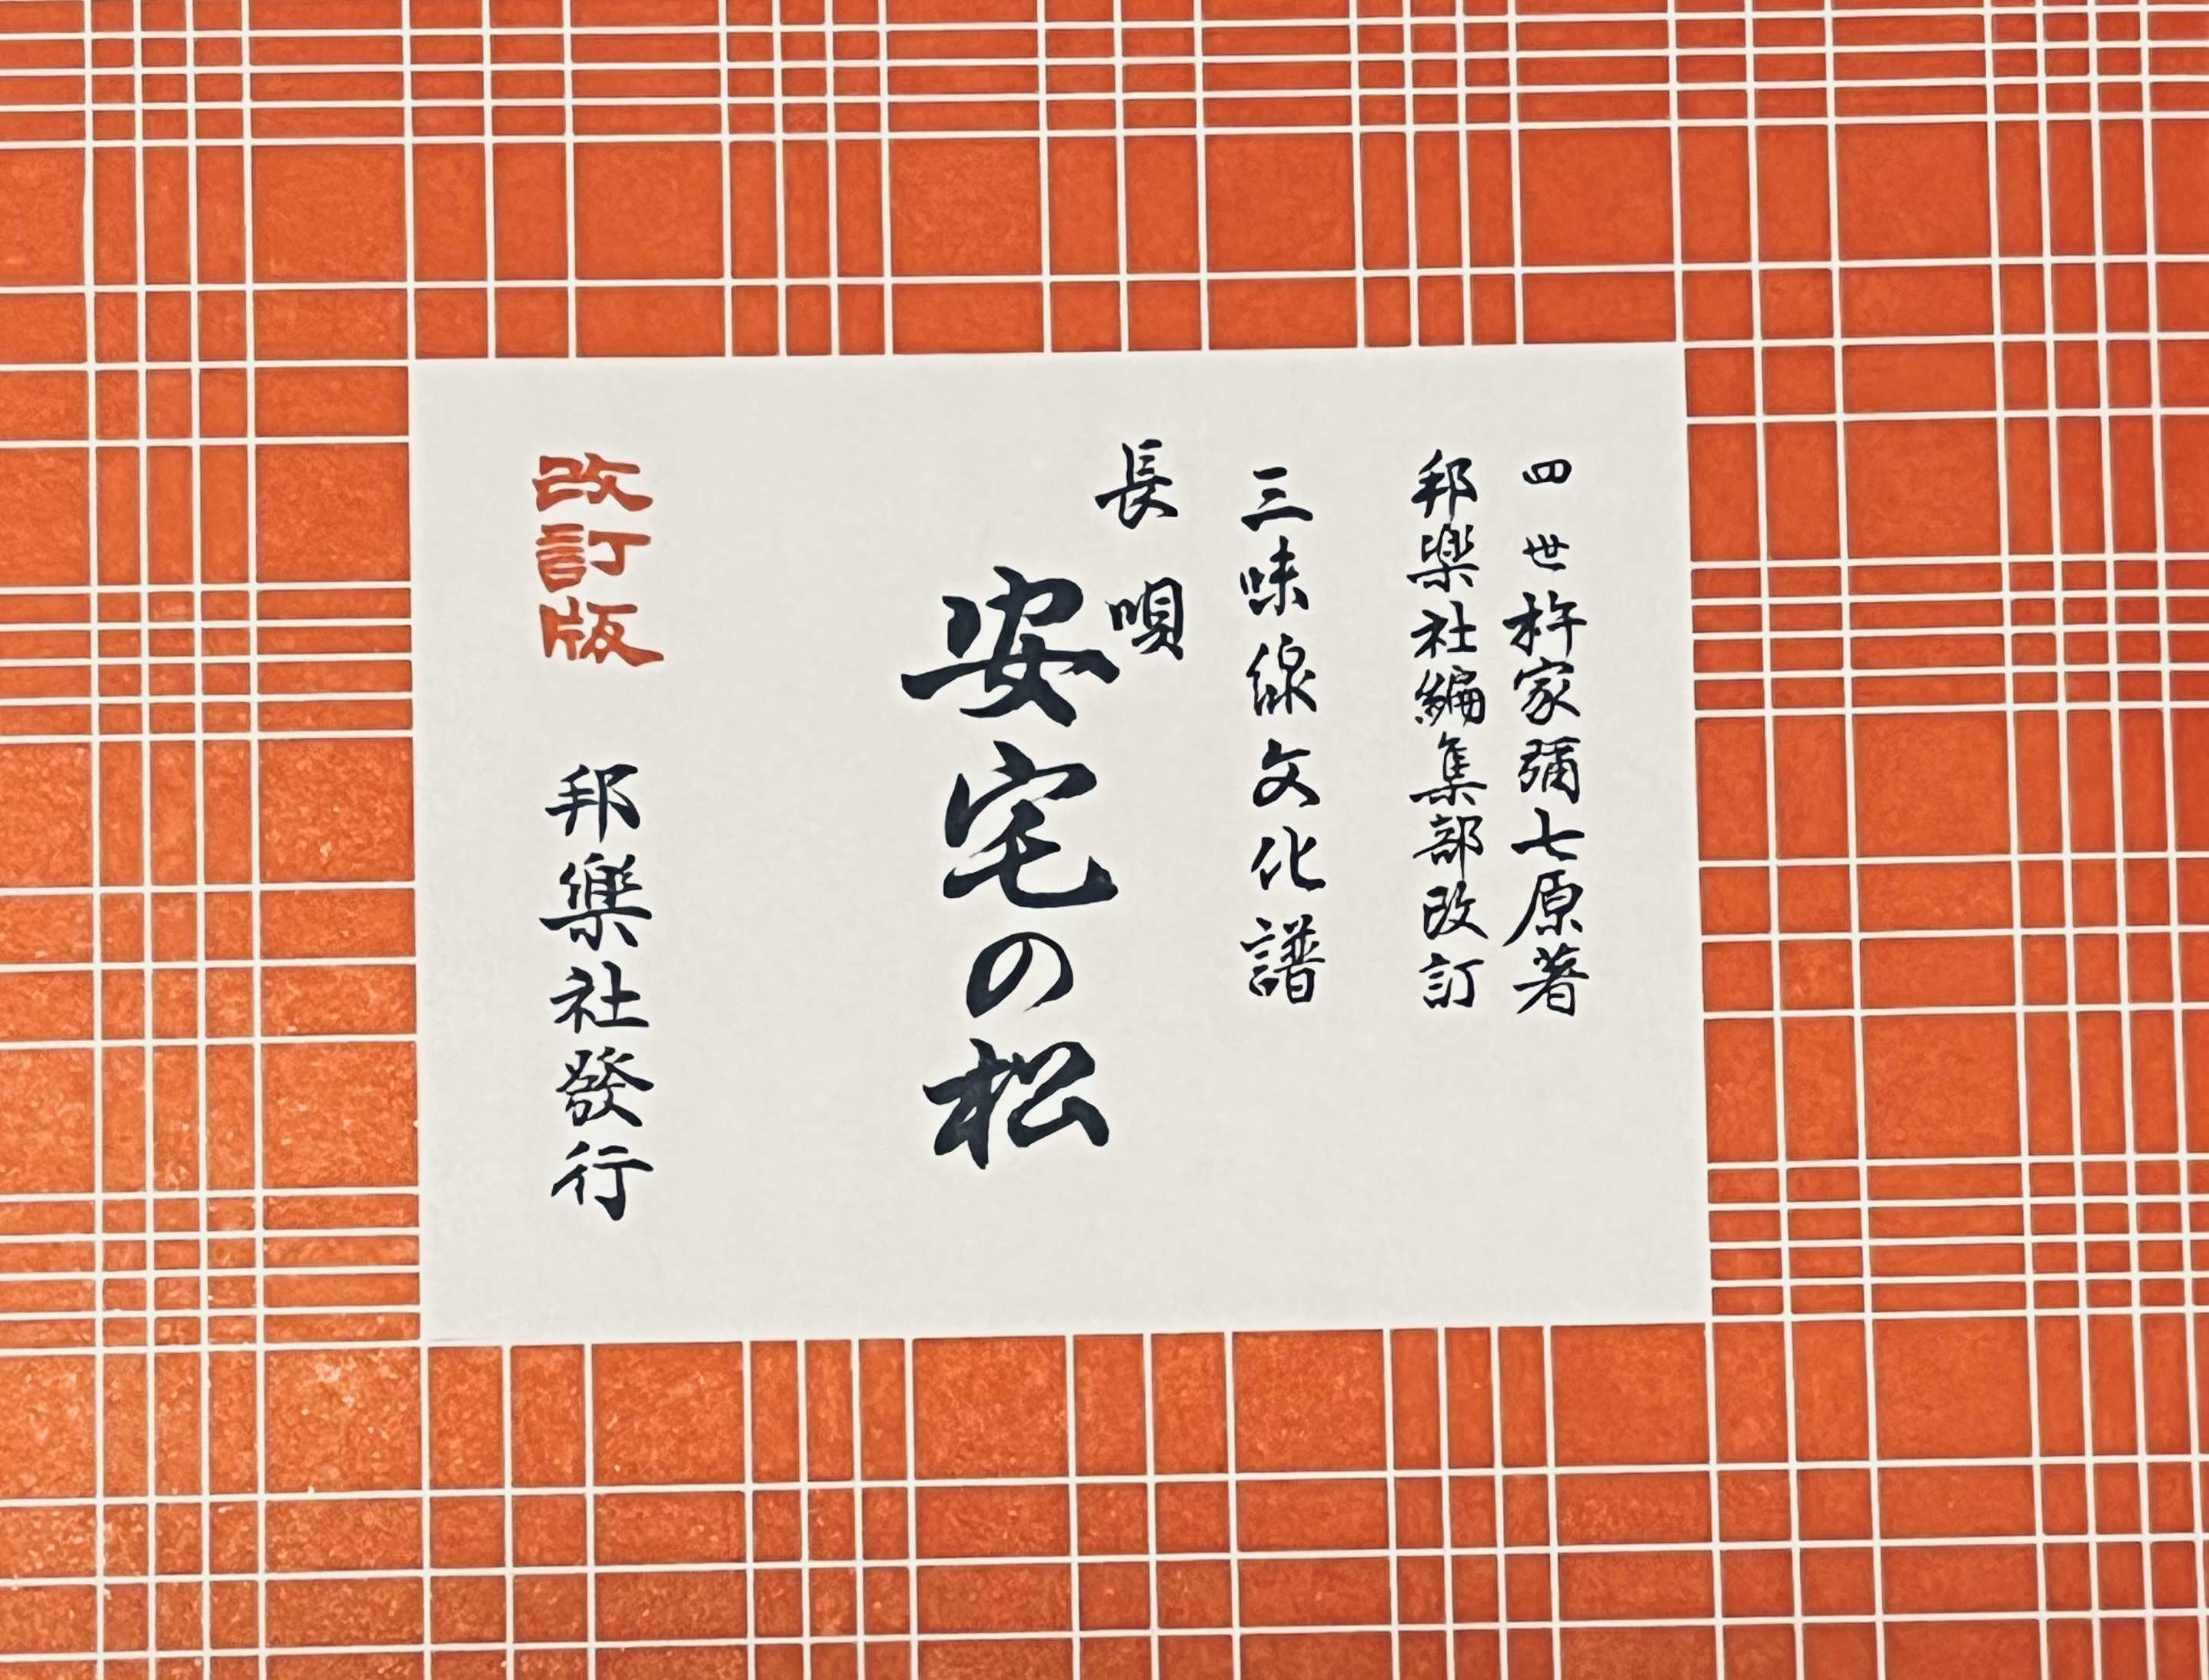 四世杵家彌七原著
邦楽社編集部改訂
三味線文化譜
長唄
安宅の松
改訂版
邦樂社發行